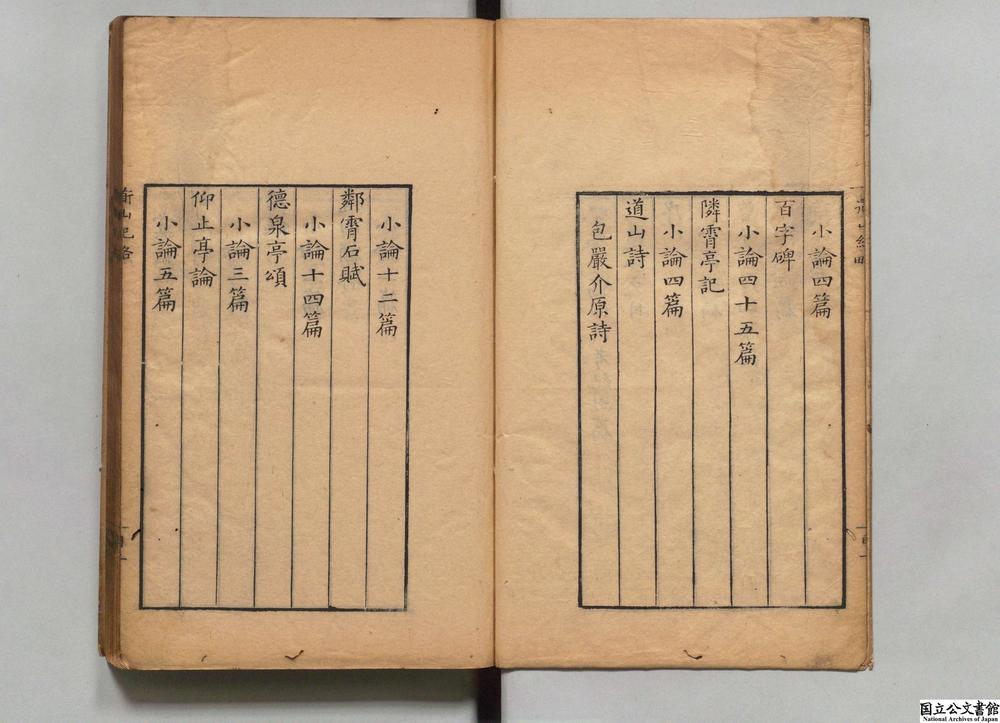 小論四篇
百字碑
小論四十五篇
隣霄亭記
小論四篇
道山詩
包嚴介原詩
小論十二篇
鄰霄石賦
小論十四篇
德泉亭頌
小論三篇
仰止亭論
小論五篇
国立公文書館
National Archives of Japan